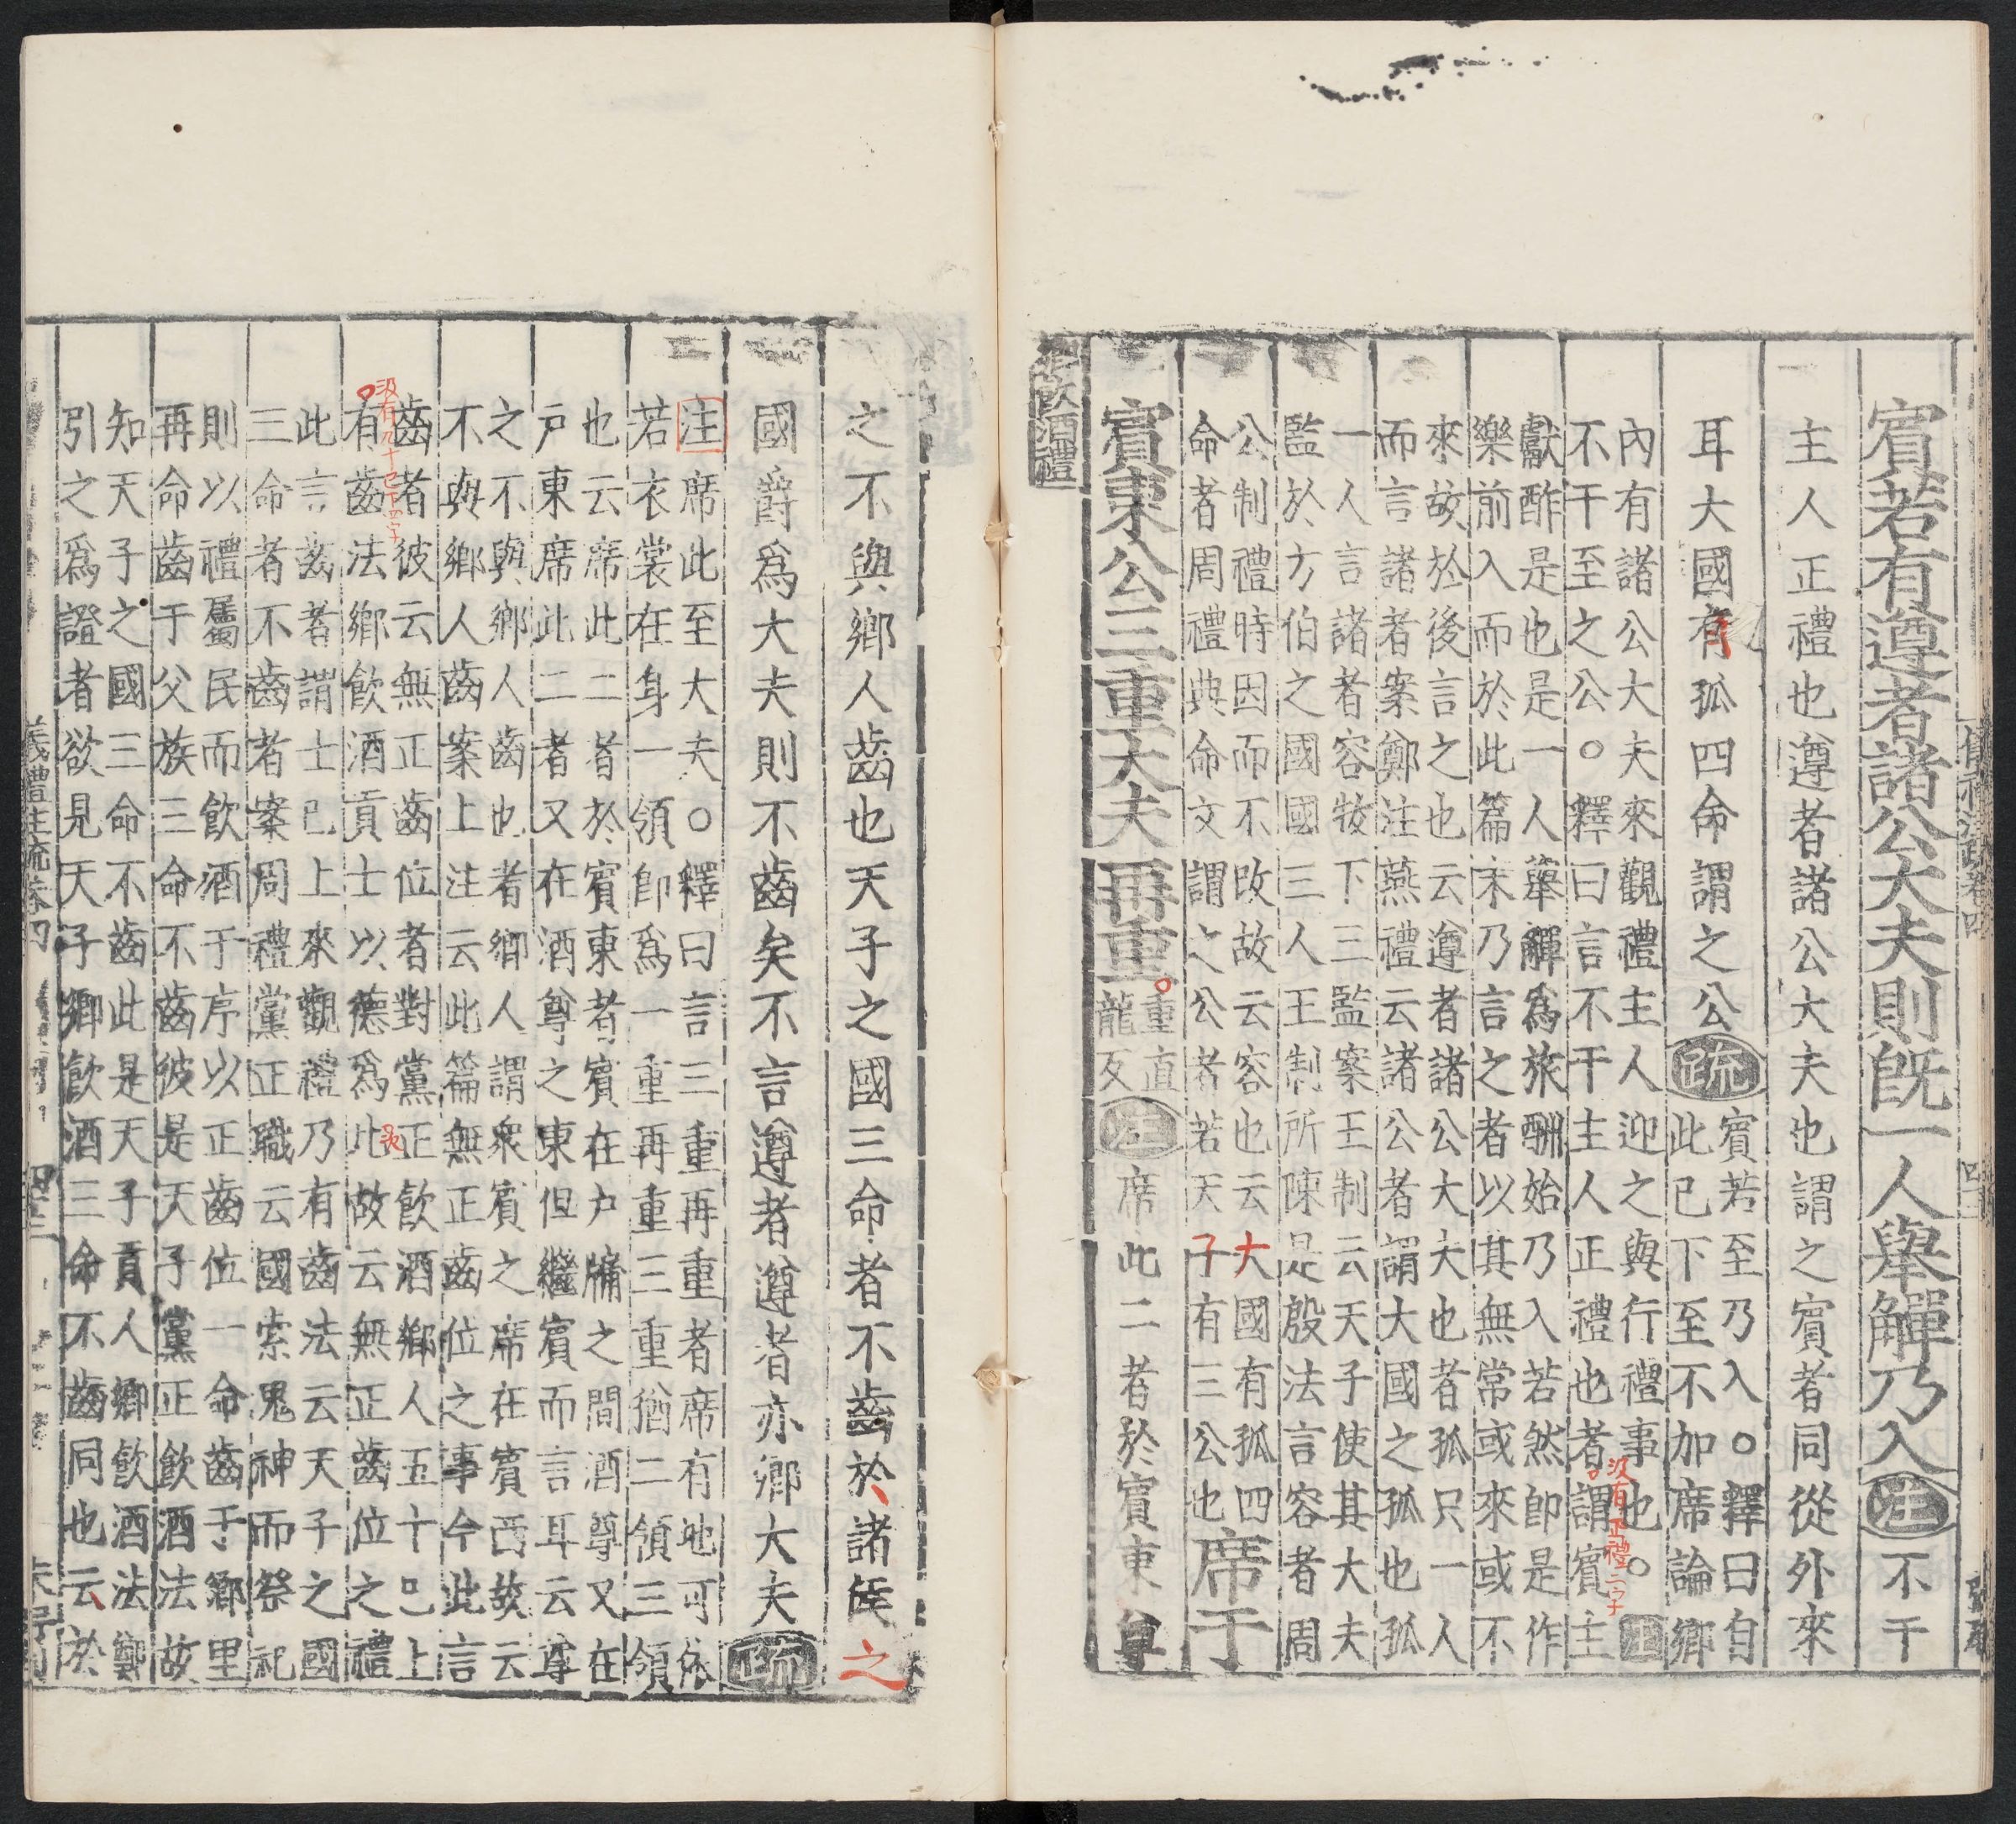 賓若有遵者諸公大夫則既一人舉觶乃入注不干
主人正禮也遵者諸公大夫也謂之賓者同從外來
耳大國有孤四命謂之公疏賓若至乃入○釋曰自
此已下至不加席論鄉
內有諸公大夫來觀禮主人迎之與行禮事也○注
不干至之公○釋曰言不干主人正禮也者謂賓主
没有正禮二字
獻酢是也是一人舉觶為旅酬始乃入若然即是作
樂前入而於此篇末乃言之者以其無常或來或不
來故於後言之也云遵者諸公大夫也者孤只一人
而言諸者案鄭注燕禮云諸公者謂大國之孤也孤
一人言諸者容牧下三監案王制云天子使其大夫
監於方伯之國國三人王制所陳是殷法言容者周
公制禮時因而不改故云容也云大國有孤四
命者周禮典命文謂之公者若天子有三公也席于
賓東公三重大夫再重重直
龍反注席此二者於賓東尊
鄉飲酒禮
之不與鄉人齒也天子之國三命者不齒於諸侯之
國爵為大夫則不齒矣不言遵者遵者亦鄉大夫疏
注席此至大夫○釋曰言三重再重者席有地可依
若衣裳在身一領即為一重再重三重猶二領三領
也云席此二者於賓東者賓在户牖之間酒尊又在
户東席此二者又在酒尊之東但繼賓而言耳云尊
之不與鄉人齒也者鄉人謂衆賓之席在賓西故云
不與鄉人齒案上注云此篇無正齒位之事今此言
齒者彼云無正齒位者對黨正飲酒鄉人五十已上
没有九十已下四字
有齒法鄉飲酒貢士以德為此故云無正齒位之禮
此言齒者謂士已上來觀禮乃有齒法云天子之國
三命者不齒者案周禮黨正職云國索鬼神而祭祀
則以禮屬民而飲酒于序以正齒位一命齒于鄉里
再命齒于父族三命不齒彼是天子黨正飲酒法故
知天子之國三命不齒此是天子貢人鄉飲酒法鄭
引之為證者欲見天子鄉飲酒三命不齒同也云於
儀禮注疏卷四